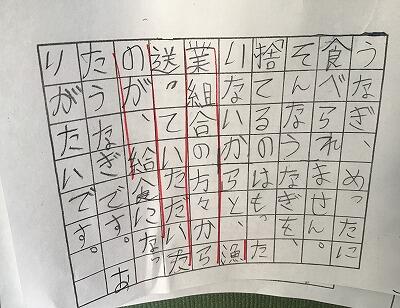 うなぎ、めったに
食べられません。
そんなうなぎを、
捨てるのはもった
いないからと、漁
業組合の方々から
送っていただいた
のが、給食になっ
たうなぎです。あ
りがたいです。